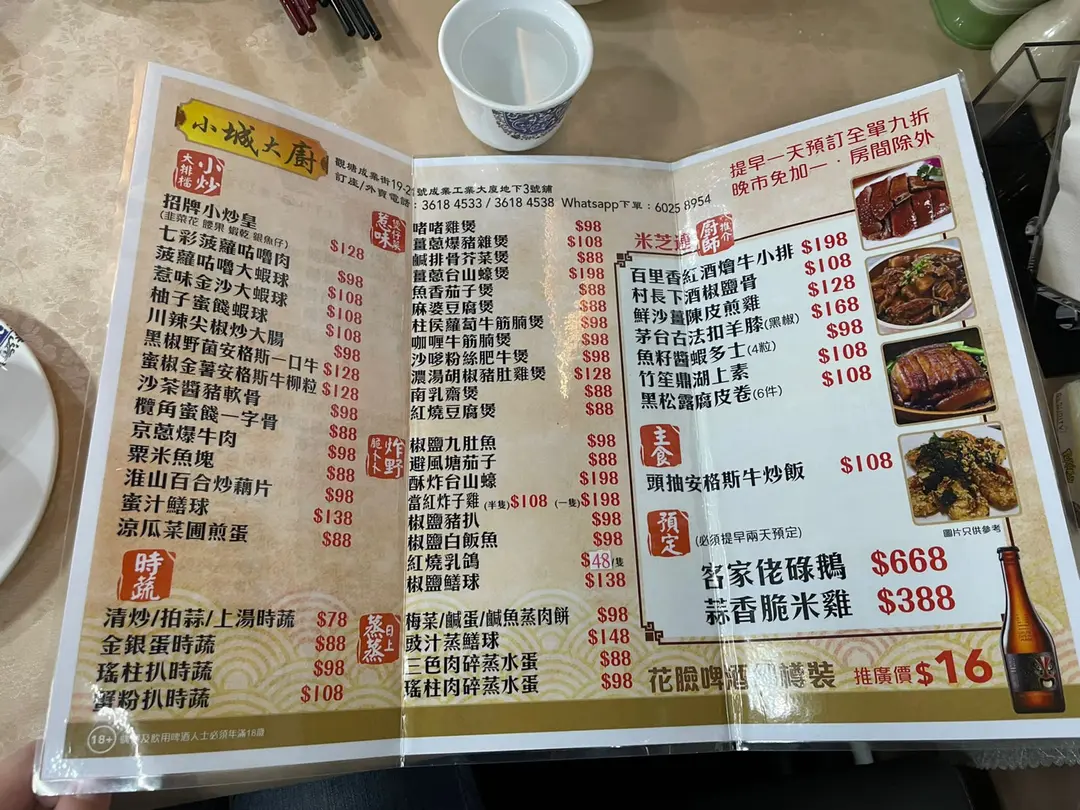 小城大廚
觀塘成業街19-21號成業工業大廈地下3號舖
訂座/外賣電話：3618 4533 / 3618 4538 Whatsapp下單：6025 8954
大排檔
小炒
招牌小炒皇 $128
(韭菜花 腰果 蝦乾 銀魚仔)
七彩菠蘿咕嚕肉 $98
菠蘿咕嚕大蝦球 $108
惹味金沙大蝦球 $108
柚子蜜餞蝦球 $108
川辣尖椒炒大腸 $98
黑椒野菌安格斯一口牛 $128
蜜椒金薯安格斯牛柳粒 $128
沙茶醬豬軟骨 $98
欖角蜜餞一字骨 $88
京蔥爆牛肉 $98
粟米魚塊 $88
淮山百合炒藕片 $98
蜜汁鱔球 $138
涼瓜菜圃煎蛋 $88
時蔬
清炒/拍蒜/上湯時蔬 $78
金銀蛋時蔬 $88
瑤柱扒時蔬 $98
蟹粉扒時蔬 $108
18+ 購買及飲用啤酒人士必須年滿18歲
惹味
煲仔菜
啫啫雞煲 $98
薑蔥爆豬雜煲 $108
鹹排骨芥菜煲 $88
薑蔥台山蠔煲 $198
魚香茄子煲 $88
麻婆豆腐煲 $88
柱侯蘿蔔牛筋腩煲 $98
咖喱牛筋腩煲 $98
沙嗲粉絲肥牛煲 $98
濃湯胡椒豬肚雞煲 $128
南乳齋煲 $88
紅燒豆腐煲 $88
炸野
脆卜卜
椒鹽九肚魚 $98
避風塘茄子 $88
酥炸台山蠔 $198
當紅炸子雞 (半隻)$108 (一隻)$198
椒鹽豬扒 $98
椒鹽白飯魚 $98
紅燒乳鴿 $48/隻
椒鹽鱔球 $138
日上
蒸蒸
梅菜/鹹蛋/鹹魚蒸肉餅 $98
豉汁蒸鱔球 $148
三色肉碎蒸水蛋 $88
瑤柱肉碎蒸水蛋 $98
提早一天預訂全單九折
晚市免加一．房間除外
米芝蓮
廚師
推介
百里香紅酒燴牛小排 $198
村長下酒椒鹽骨 $108
鮮沙薑陳皮煎雞 $128
茅台古法扣羊膝(黑椒) $168
魚籽醬蝦多士(4粒) $98
竹笙鼎湖上素 $108
黑松露腐皮卷(6件) $108
主食
頭抽安格斯牛炒飯 $108
預定
(必須提早兩天預定)
圖片只供參考
客家佬碌鵝 $668
蒜香脆米雞 $388
花臉啤酒 樽裝 推廣價$16